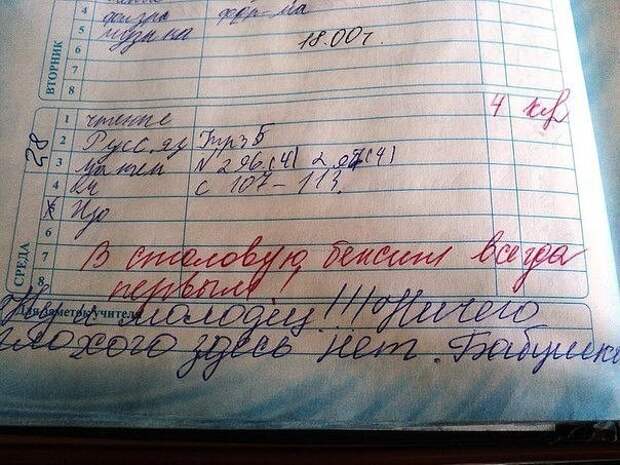 4 физра фор-ма
5 музыка 18.00г.
6
7
8
ВТОРНИК
28
СРЕДА
1 чтение 4
2 Русс.яз Упр 5
3 N 296(4) 297(4)
4 с 107-113.
5 Изо
6
7 В столовую бежит всегда
8 первым!
Ну и молодец!!! Ничего
Для заметок учителя
плохого здесь нет. Бабушка